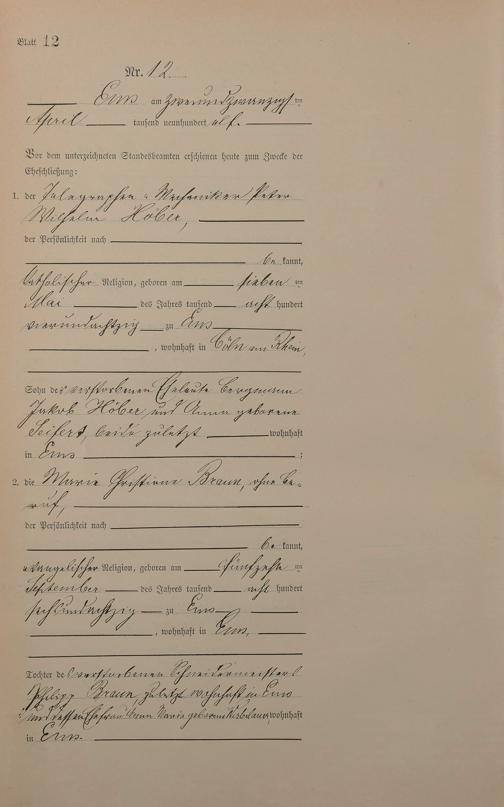 Blatt 12
Nr. 12
Ems am zweiundzwanzigsten
April tausend neunhundert elf.
Vor dem unterzeichneten Standesbeamten erschienen heute zum Zwecke der
Eheschließung:
1. der Telegraphen-Mechaniker Peter
Wilhelm Höber,
der Persönlichkeit nach
be kannt,
katholischer Religion, geboren am sieben ten
Mai des Jahres tausend acht hundert
vierundachtzig zu Ems
, wohnhaft in Cöln am Rhein,
Sohn der verstorbenen Eheleute Bergmann
Jakob Höber und Anna geborene
Seifert, beide zuletzt wohnhaft
in Ems ;
2. die Marie Christiane Braun, ohne Be-
ruf,
der Persönlichkeit nach
be kannt,
evangelischer Religion, geboren am fünfzehn ten
September des Jahres tausend acht hundert
sechsundachtzig zu Ems
, wohnhaft in Ems,
Tochter des verstorbenen Schneidermeisters
Philipp Braun, zuletzt wohnhaft in Ems
und dessen Ehefrau Marie geborene wohnhaft
in Ems.